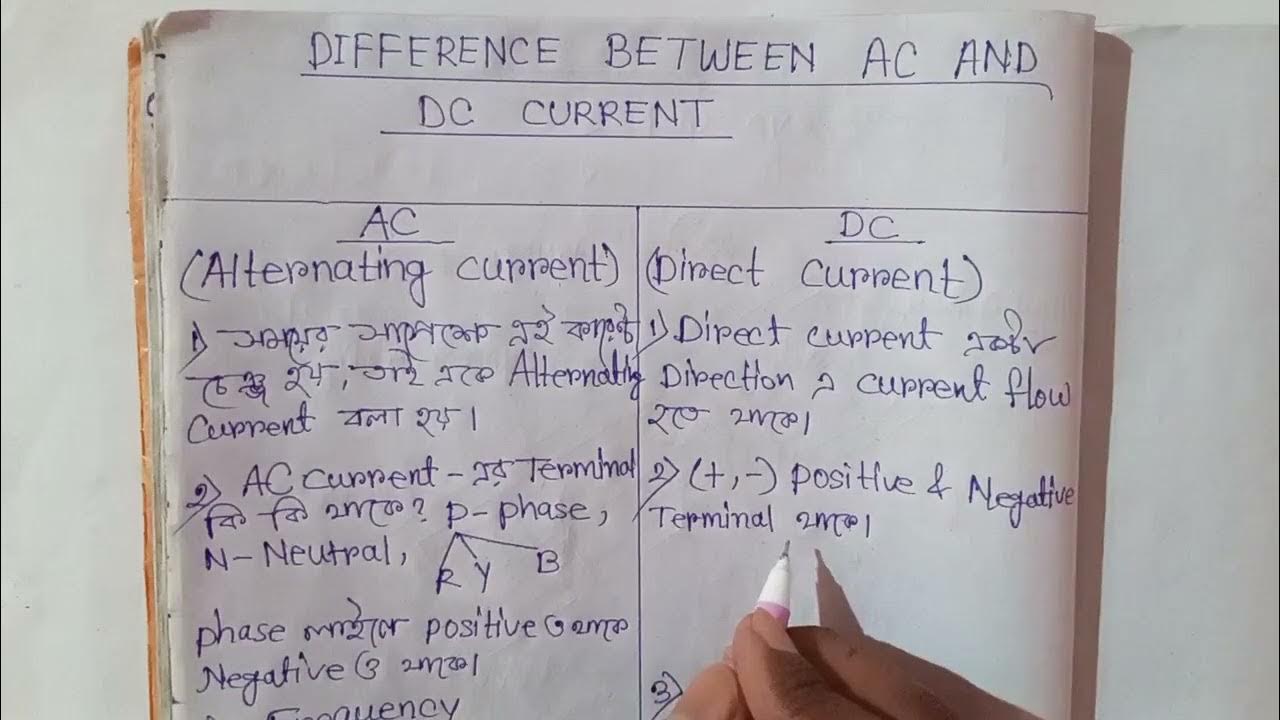 DIFFERENCE BETWEEN AC AND
DC CURRENT
AC
(Alternating current)
১) সময়ের সাপেক্ষে এই কারেন্ট
চেঞ্জ হয়, তাই একে Alternating
Current বলা হয়।
২) AC Current - এর Terminal
কি কি থাকে? P-phase,
N-Neutral,
R Y B
phase লাইনে positive ও থাকে
Negative ও থাকে।
Frequency
DC
(Direct Current)
১) Direct current একটি
Direction এ current flow
হতে থাকে।
২) (+,-) positive & Negative
Terminal থাকে।
৩)